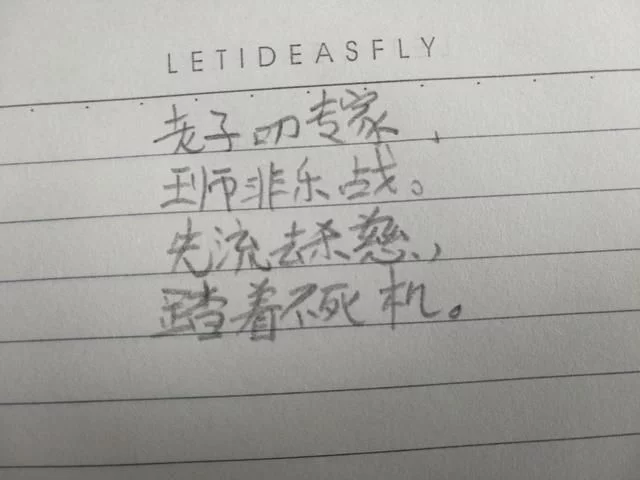 LETIDEASFLY
老子叨专家,
王师非乐战。
先流去杀慈,
踏着不死机。